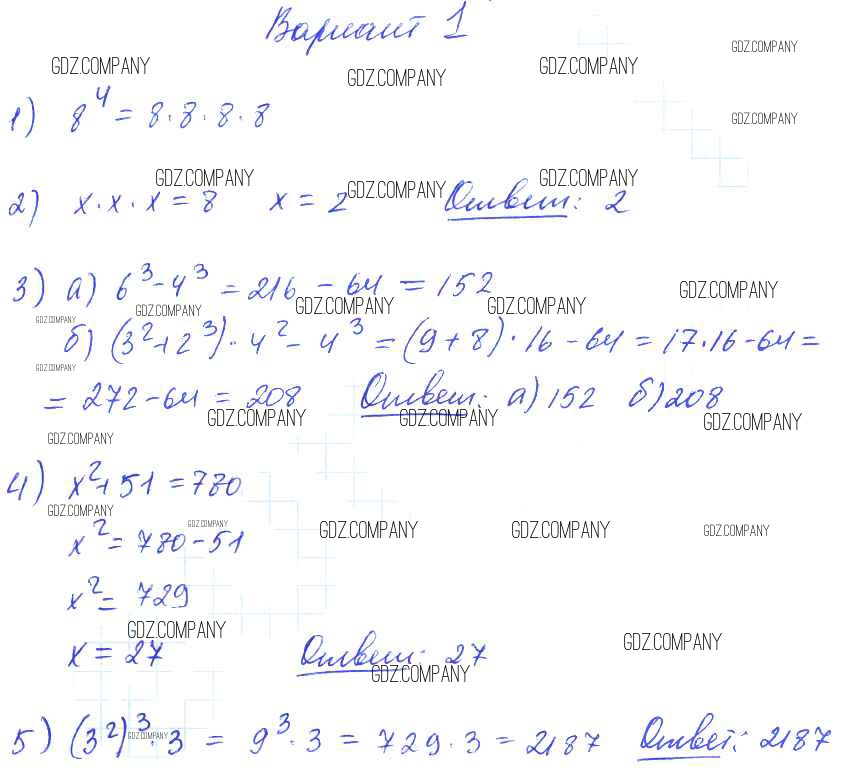 Вариант 1
GDZ.COMPANY GDZ.COMPANY GDZ.COMPANY GDZ.COMPANY
1) 8⁴ = 8·8·8·8
GDZ.COMPANY
GDZ.COMPANY GDZ.COMPANY GDZ.COMPANY
2) x·x·x = 8 x = 2 Ответ: 2
3) а) 6³-4³ = 216 - 64 = 152
GDZ.COMPANY GDZ.COMPANY GDZ.COMPANY GDZ.COMPANY GDZ.COMPANY
б) (3²+2³)·4²-4³ = (9+8)·16-64 = 17·16-64 =
GDZ.COMPANY
= 272-64 = 208 Ответ: а) 152 б) 208
GDZ.COMPANY GDZ.COMPANY GDZ.COMPANY
GDZ.COMPANY
4) x²+51 = 780
GDZ.COMPANY
x² = 780-51
GDZ.COMPANY GDZ.COMPANY GDZ.COMPANY GDZ.COMPANY
x² = 729
GDZ.COMPANY GDZ.COMPANY
x = 27 Ответ: 27
GDZ.COMPANY
5) (3²)³·3 = 9³·3 = 729·3 = 2187 Ответ: 2187
GDZ.COMPANY